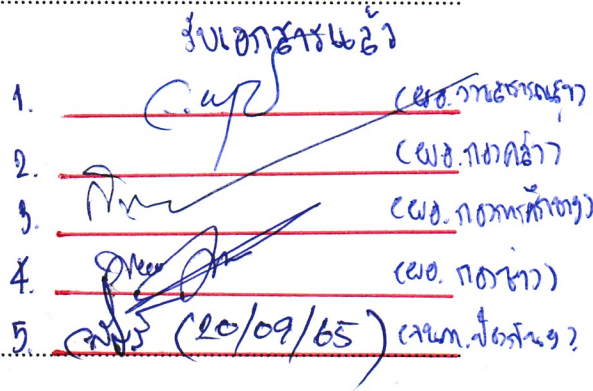 รับเอกสารแล้ว
1. (ผอ.งานสาธารณสุขฯ)
2. (ผอ.กองคลังฯ)
3. (ผอ.กองการศึกษาฯ)
4. (ผอ.กองช่างฯ)
5. (20/09/65) (จนท.ป้องกันฯ)